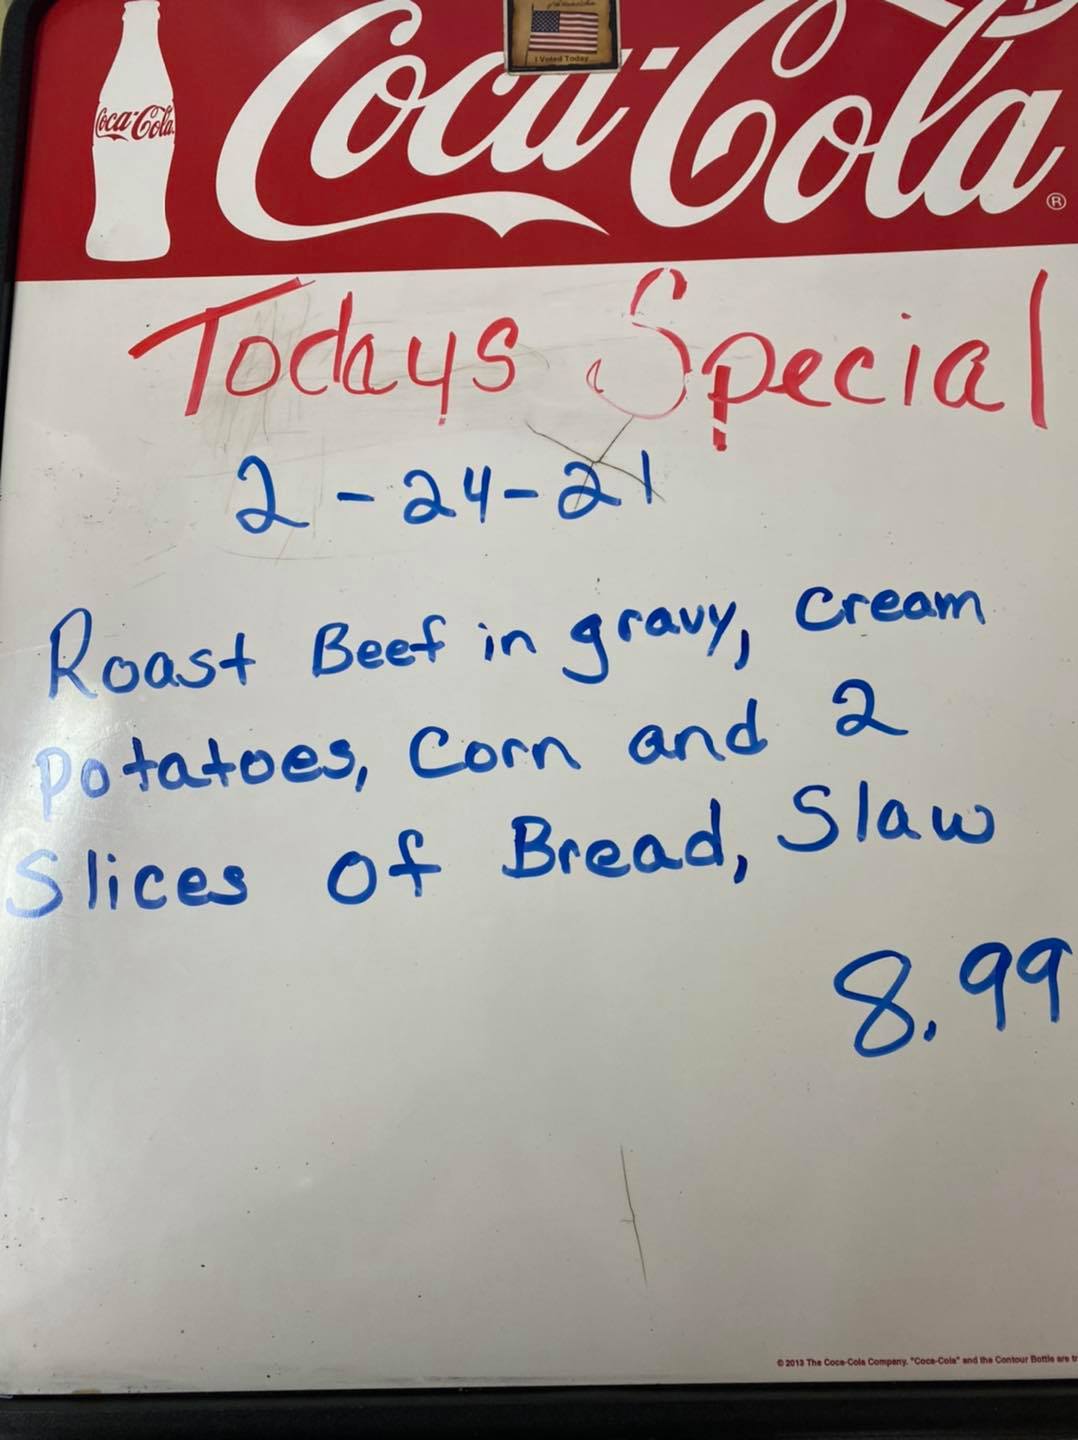 I Voted Today
Coca-Cola
Coca-Cola®
Todays Special
2-24-21
Roast Beef in gravy, cream
potatoes, Corn and 2
Slices of Bread, Slaw
8.99
© 2013 The Coca-Cola Company. "Coca-Cola" and the Contour Bottle are